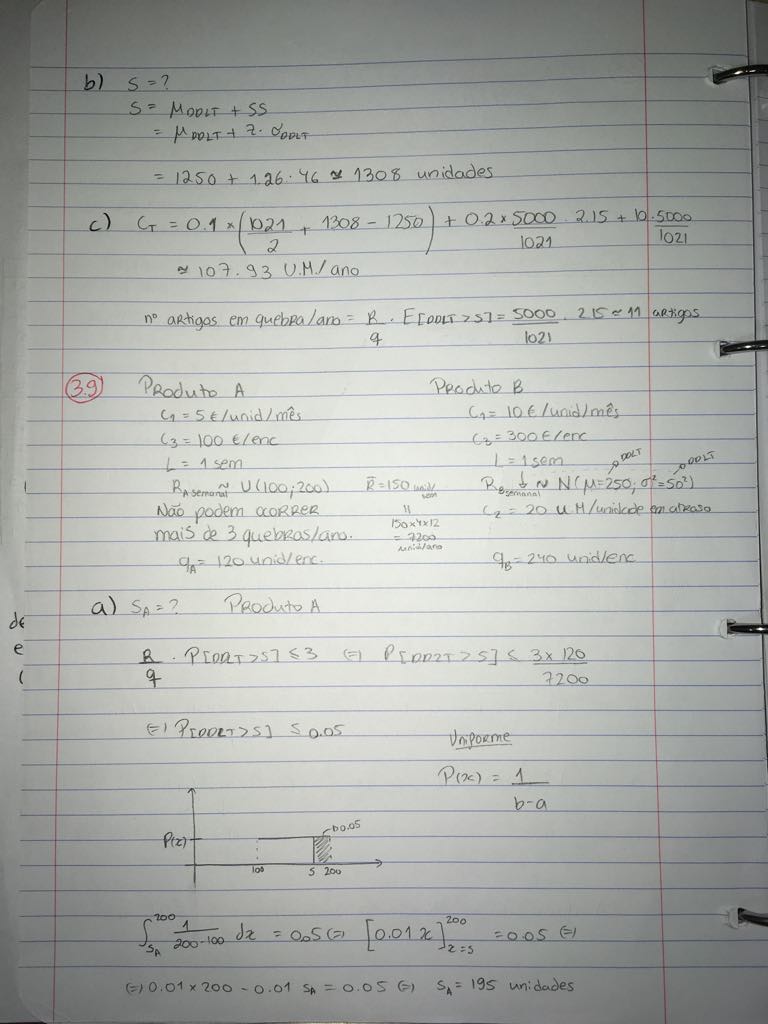 b) S = ?
S = μDDLT + SS
= μDDLT + z · σDDLT
= 1250 + 1.26 · 46 ≈ 1308 unidades
c) CT = 0.1 × (1021/2 + 1308 - 1250) + 0.2 × 5000/1021 · 2.15 + 10 · 5000/1021
≈ 107.93 U.M./ano
nº artigos em quebra/ano = R/q · E[DDLT > S] = 5000/1021 · 2.15 ≈ 11 artigos
3.9 Produto A
C1 = 5 €/unid/mês
C3 = 100 €/enc
L = 1 sem
RA semanal ~ U(100; 200)
R̄ = 150 unid/sem
=
150x4x12
= 7200
unid/ano
Não podem ocorrer
mais de 3 quebras/ano.
qA = 120 unid/enc.
Produto B
C1 = 10 €/unid/mês
C3 = 300 €/enc
L = 1 sem
DDLT
DDLT
RB semanal ~ N(μ=250, σ²=50²)
C2 = 20 U M/unidade em atraso
qB = 240 unid/enc
a) SA = ? Produto A
R/q · P[DDLT > S] ≤ 3 (=) P[DDLT > S] ≤ 3 x 120/7200
(=) P[DDLT > S] ≤ 0.05
Uniforme
P(x) = 1/b-a
0.05
P(x)
100 S 200
∫SA^200 1/200-100 dx = 0.05 (=) [0.01 x]^200 x=s = 0.05 (=)
(=) 0.01 x 200 - 0.01 SA = 0.05 (=) SA = 195 unidades
de
e
(